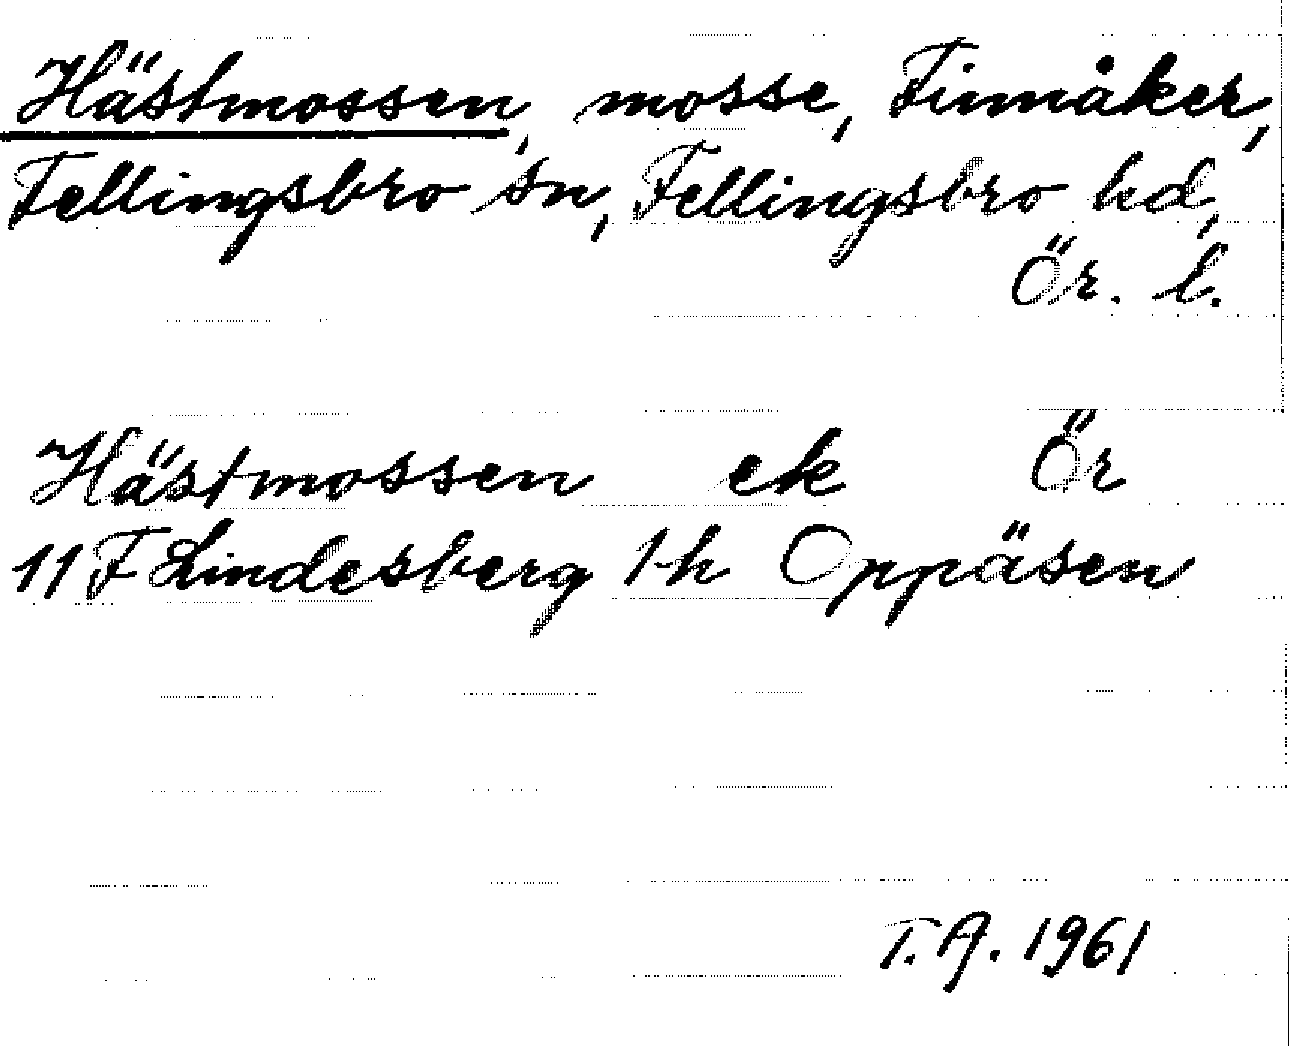 Hästmossen, mosse, Finnåker,
Fellingsbro sn, Fellingsbro hd,
Ör. l.
Hästmossen ek Ör
11 F Lindesberg 1-h Oppåsen
T.A. 1961